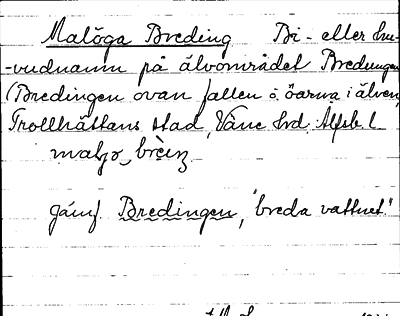 Malöga Breding Bi- eller hu-
-vudnamn på älvområdet Bredingen
(Bredingen ovan fallen o. öarna i älven,
Trollhättans stad, Väne hrd Älfsb l.
Jämf. Bredingen, "breda vattnet"